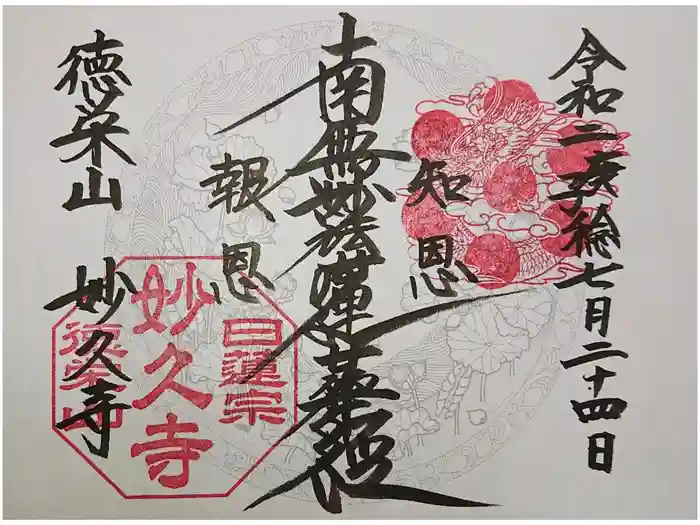 令和二庚子稔七月二十四日
知恩
南無妙法蓮華経
報恩
徳栄山 妙久寺
日蓮宗
妙久寺
徳栄山